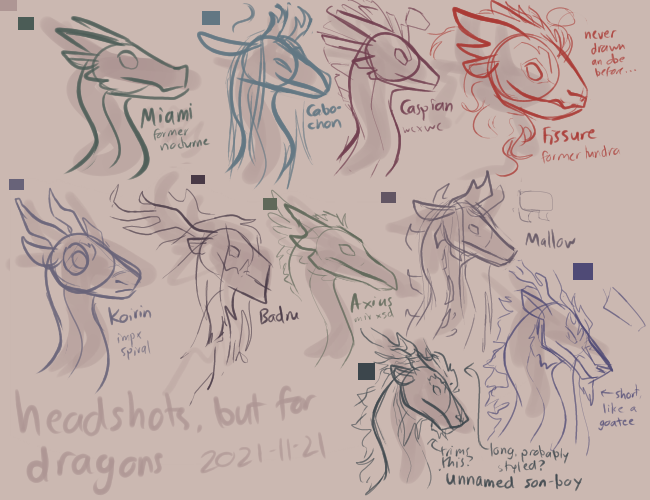 Miami
former
nocturne
Cabo-
chon
Caspian
wcxwc
never
drawn
an obe
before...
Fissure
former tundra
Koirin
impx
spiral
Badru
Axius
mirxsd
Mallow
← short,
like a
goatee
trims
this?
long, probably
styled?
unnamed son-boy
headshots, but for
dragons 2021-11-21